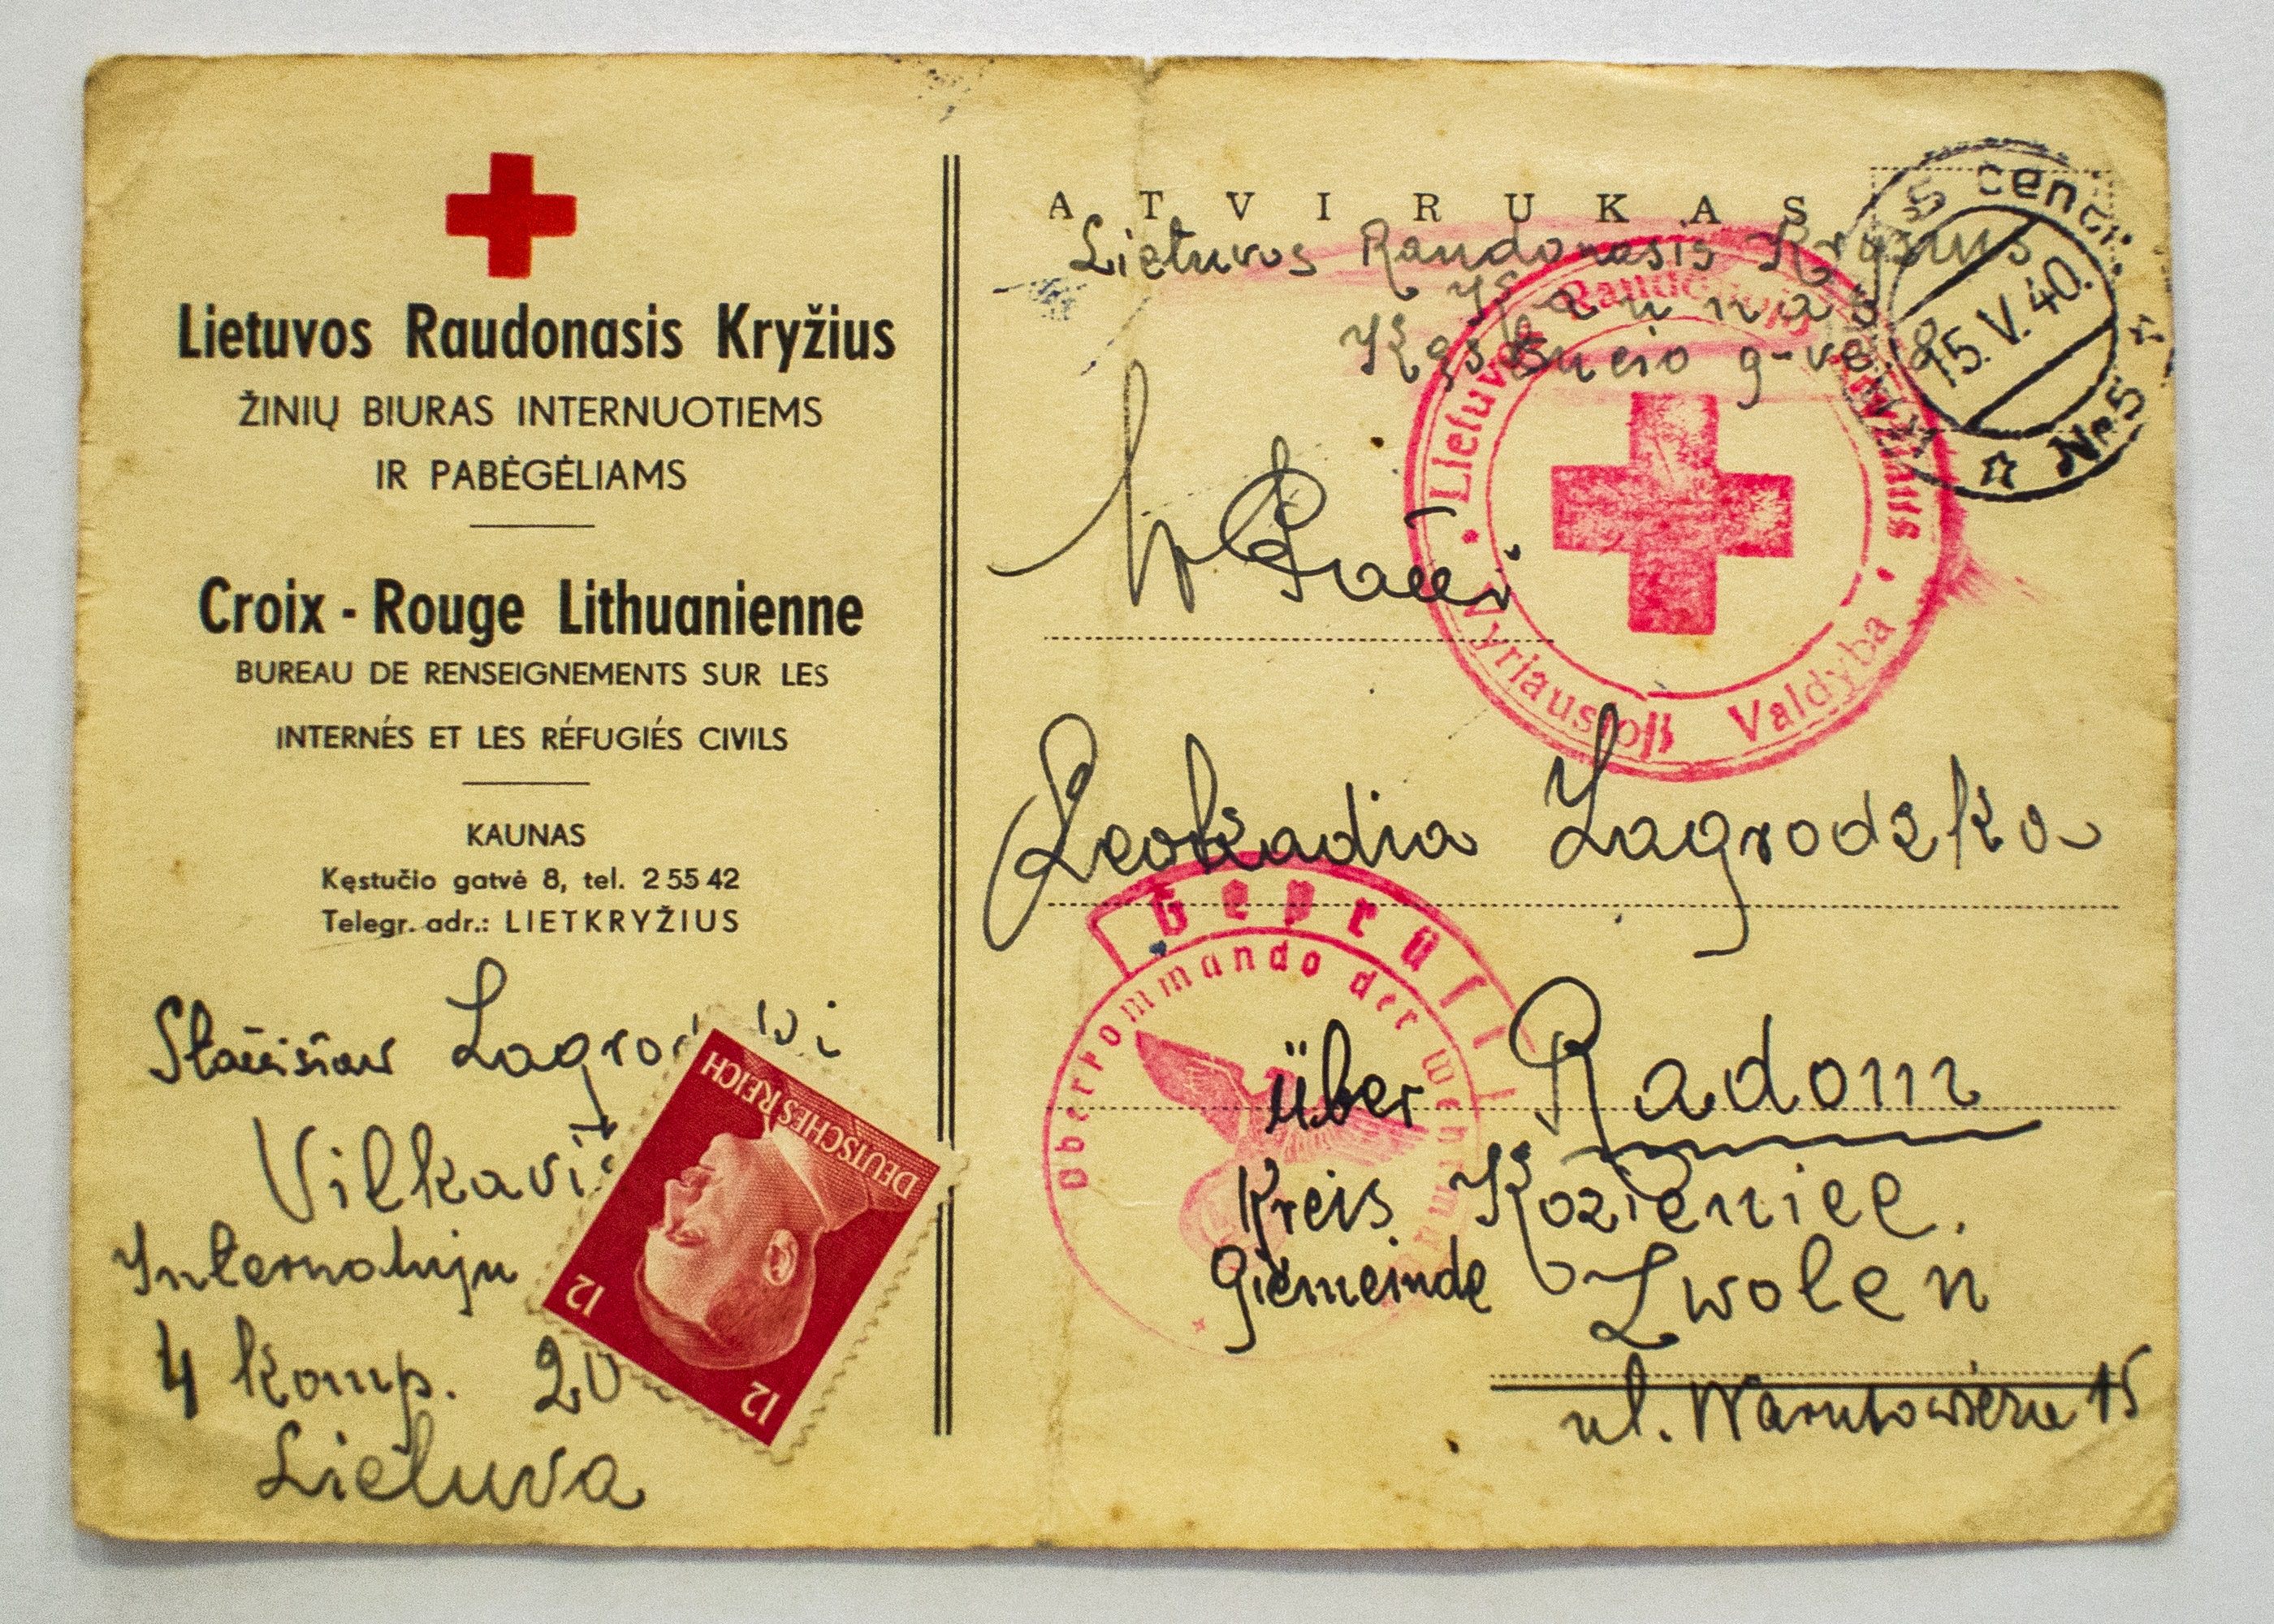 Lietuvos Raudonasis Kryžius
ŽINIŲ BIURAS INTERNUOTIEMS
IR PABĖGĖLIAMS
Croix - Rouge Lithuanienne
BUREAU DE RENSEIGNEMENTS SUR LES
INTERNÉS ET LES RÉFUGIÉS CIVILS
KAUNAS
Kęstučio gatvė 8, tel. 2 55 42
Telegr. adr.: LIETKRYŽIUS
Stanisław
Vilkavi
4 komp. 20
Lietuva
DEUTSCHES REICH
12 12
ATVIRUKAS
Lietuvos Raudonasis Kryžius
Kaunas
Kęstučio g-vė 8
15.V.40.
Nr 5
Lietuvos Raudonasis Kryžius
Vyriausioji Valdyba
Leokadia Zagrodzka
Geprüft
Oberkommando der Wehrmacht
über Radom
Kreis Kozienice.
Giemeinde Zwolen
ul. 15